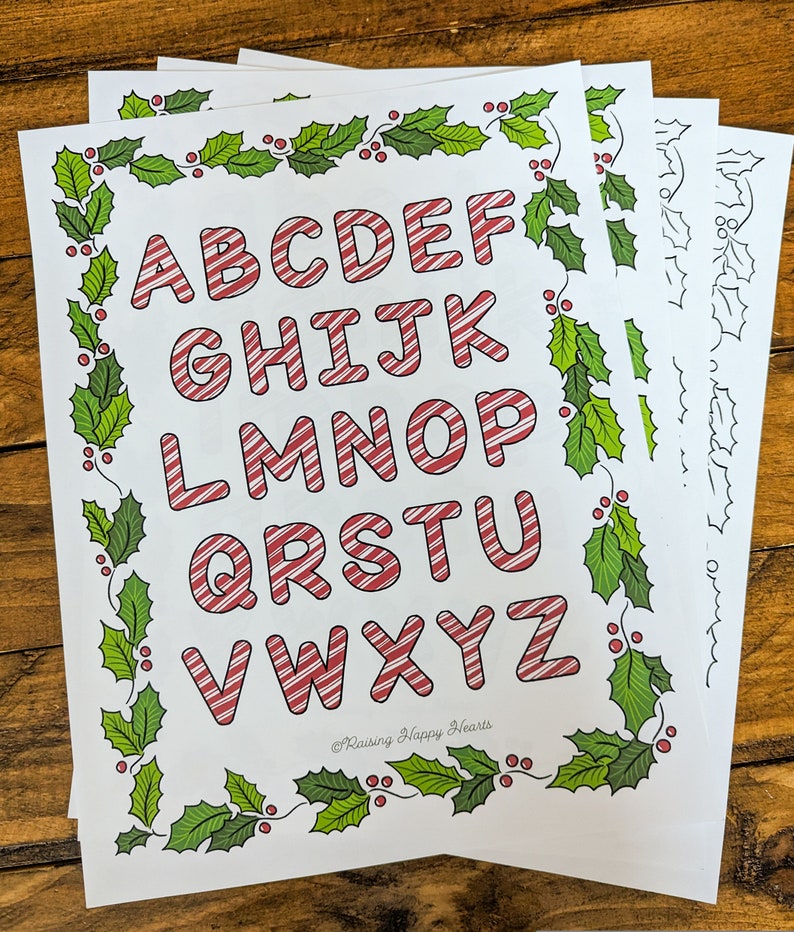 ABCDEF
GHIJK
LMNOP
QRSTU
VWXYZ
©Raising Happy Hearts